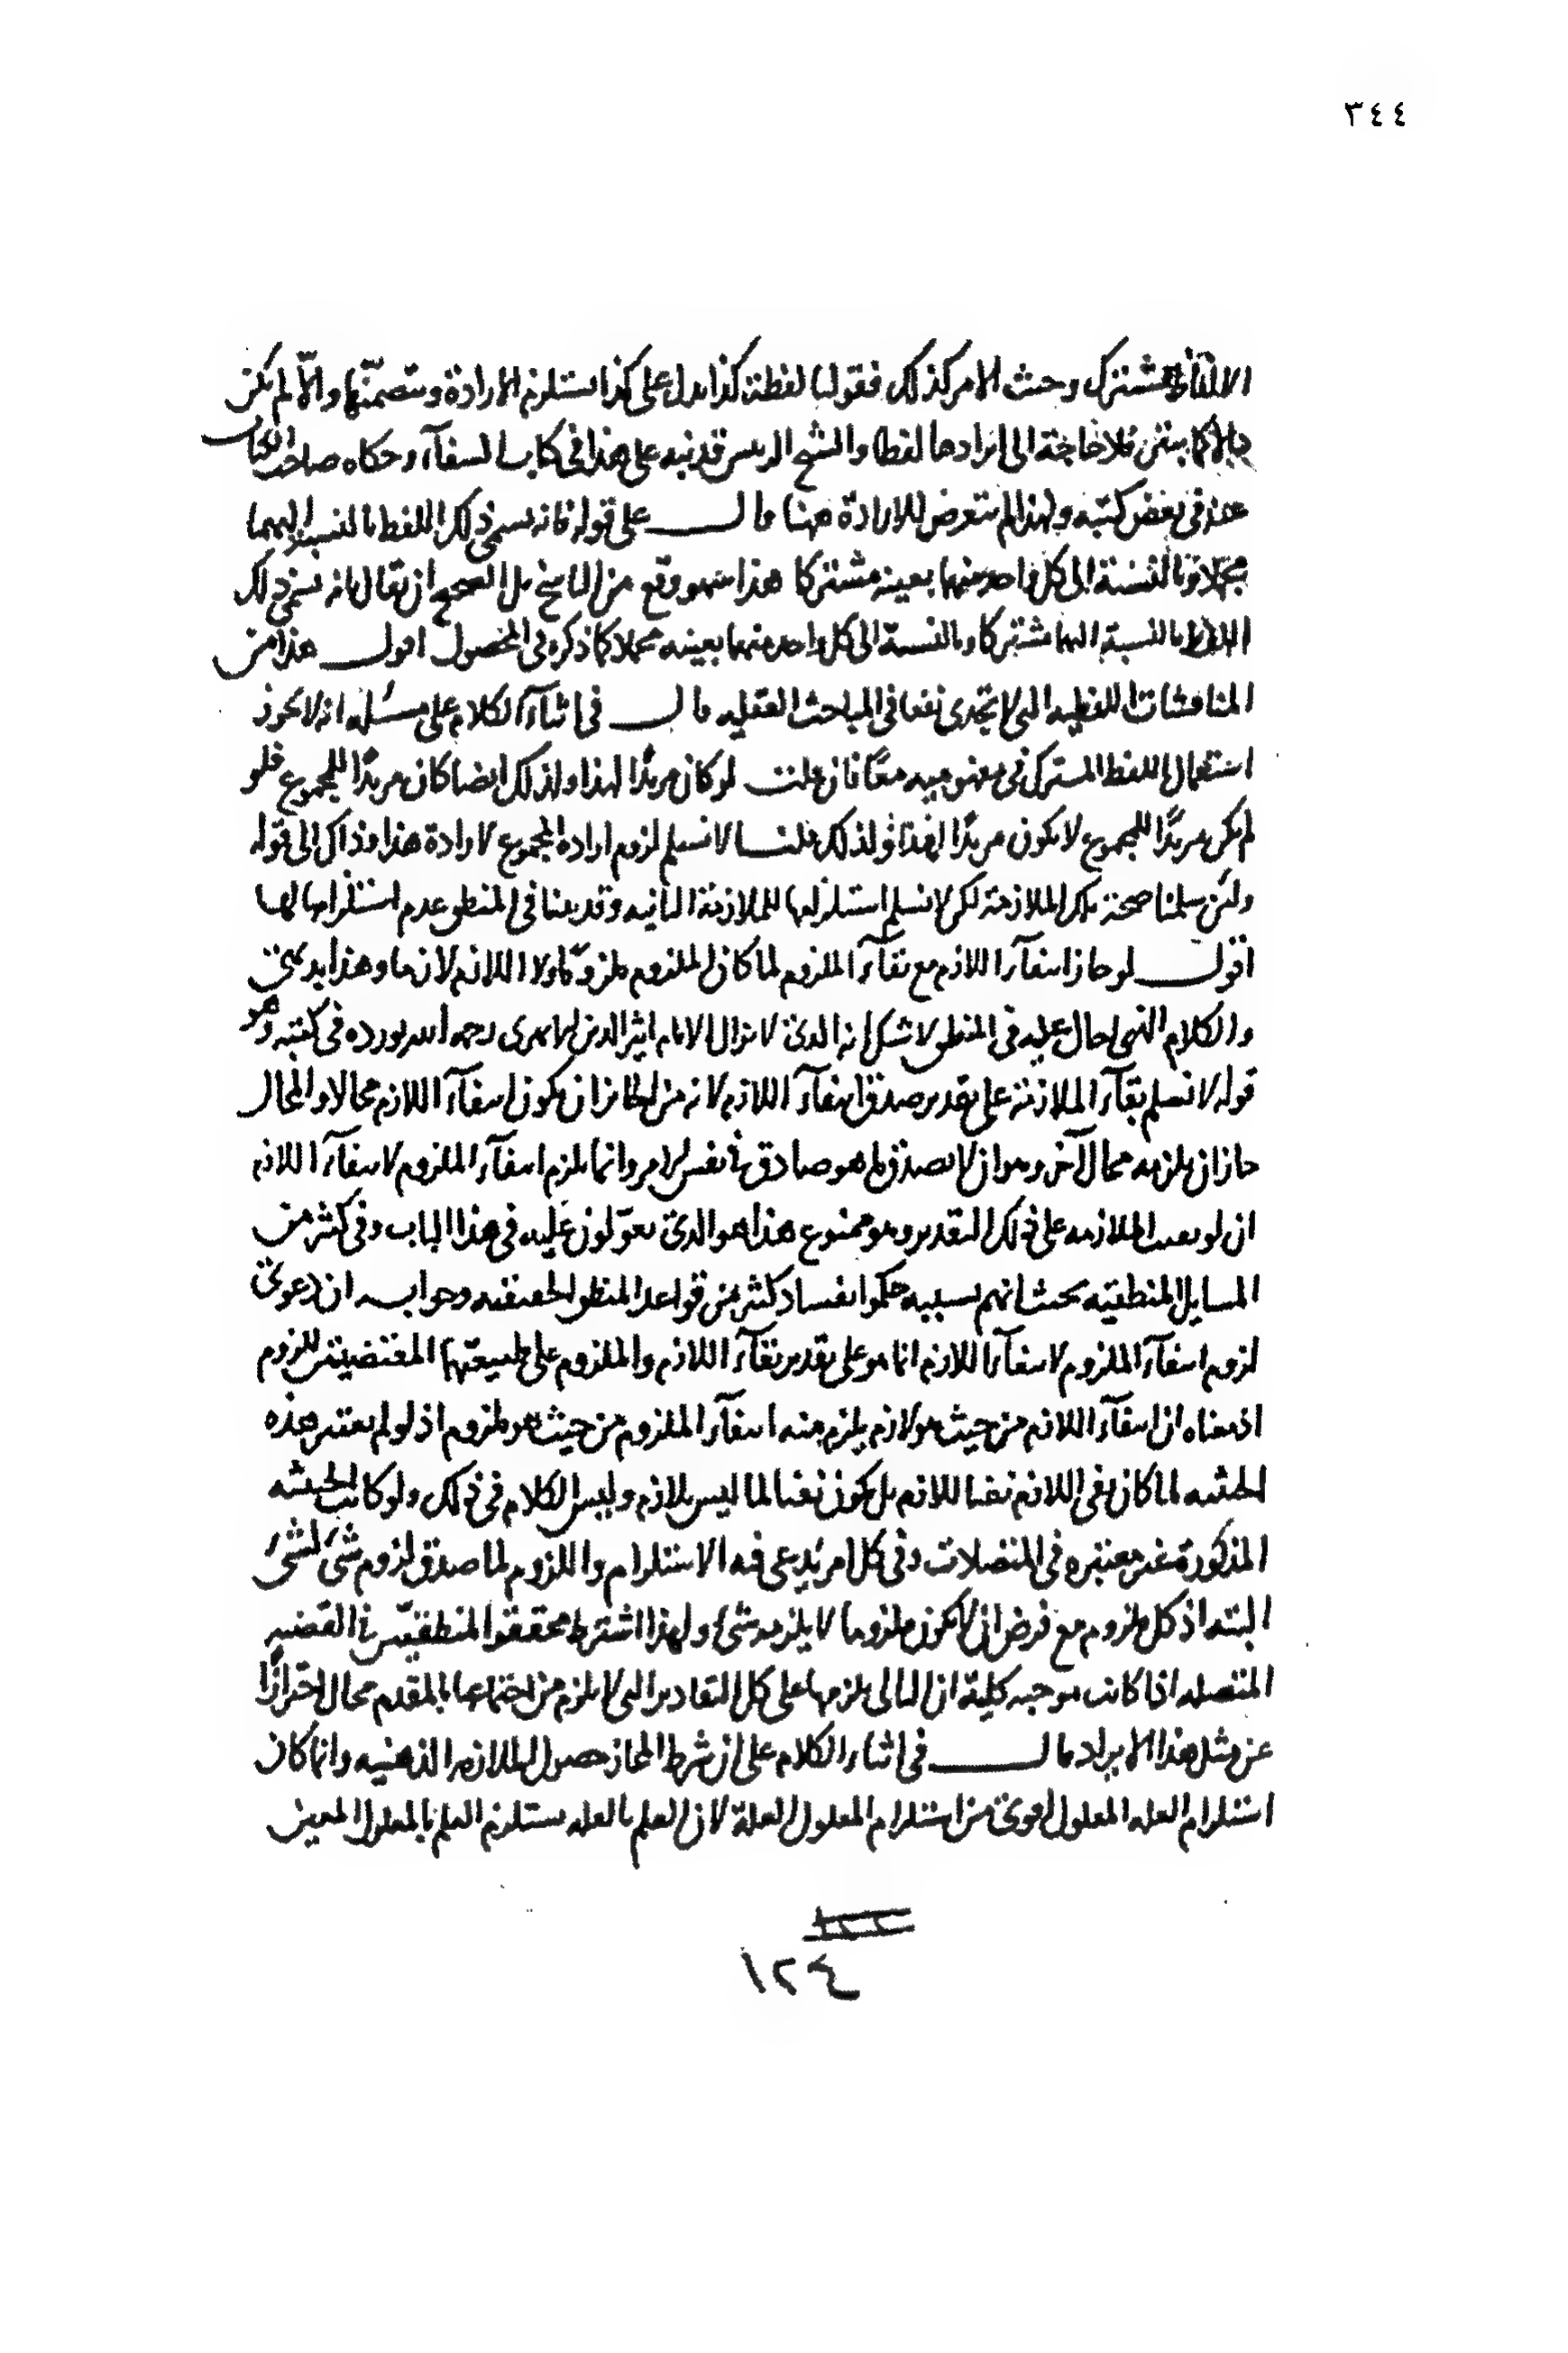 ٣٤٤
الالفاظ المشترك وحيث الامر كذلك فقولنا لفظة كذا يدل على كذا يستلزم الارادة ويتضمنها والا لم يكن
دالا كما بينتم فلا حاجة الى ايرادها لفظا والشيخ الرئيس قد نبه على هذا في كتاب الشفآء وحكاه صاحب الكتاب
عنه في بعض كتبه ولهذا لم يتعرض للارادة ههنا قال على قوله فانه يسمى ذلك اللفظ بالنسبة اليهما
مجملا وبالنسبة الى كل واحد منهما بعينه مشتركا هذا سهو وقع من الناسخ بل الصحيح ان يقال بانه يسمى ذلك
اللفظ بالنسبة اليهما مشتركا وبالنسبة الى كل واحد منهما بعينه مجملا كما ذكره في المحصول اقول هذا من
المناقشات اللفظيه التي لا تجدى نفعا في المباحث العقليه قال في اثنآء الكلام على مسئلة انه لا يجوز
استعمال اللفظ المشترك في مفهوميه معًا فان قلت لو كان مريدًا لهذا ولذلك ايضا كان مريدًا للمجموع فلو
لم يكن مريدًا للمجموع لا يكون مريدًا لهذا ولذلك قلنا لا نسلم لزوم ارادة المجموع لارادة هذا وذاك الى قوله
ولئن سلمنا صحة تلك الملازمة لكن لا نسلم استلزامها للملازمة الثانيه وقد بينا في المنطق عدم استلزامها لها
اقول لو جاز انتفآء اللازم مع بقآء الملزوم لما كان الملزوم ملزومًا ولا اللازم لازما وهذا بديهي
والكلام الذي احال عليه في المنطق لا شك انه الذى لا يزال الامام اثير الدين الابهرى رحمه الله يورده في كتبه وهو
قوله لا نسلم بقآء الملازمة على تقدير صدق انتفآء اللازم لانه من الجائز ان يكون انتفآء اللازم محالا والمحال
جاز ان يلزمه محال آخر وهو ان لا يصدق ما هو صادق في نفس الامر وانما يلزم انتفآء الملزوم لانتفآء اللازم
ان لو بقيت الملازمه على ذلك التقدير وهو ممنوع هذا هو الذى يعوّلون عليه في هذا الباب وفي كثير من
المسايل المنطقيه بحيث انهم بسببه حكموا بفساد كثير من قواعد المنطق الحقيقيه وجوابه ان دعوى
لزوم انتفآء الملزوم لانتفآء اللازم انما هو على تقدير بقآء اللازم والملزوم على طبيعتهما المقتضيتين للزوم
اذ معناه ان انتفآء اللازم من حيث هو لازم يلزم منه انتفآء الملزوم من حيث هو ملزوم اذ لو لم يعتبر هذه
الحيثيه لما كان نفى اللازم نفيا للازم بل يكون نفيا لما ليس بلازم وليس الكلام في ذلك ولو كانت الحيثيه
المذكورة غير معتبره في المتصلات وفي كل امر يدعى فيه الاستلزام واللزوم لما صدق لزوم شئ لشئ
البته اذ كل ملزوم مع فرض ان لا يكون ملزوما لا يلزمه شئ ولهذا اشترط محققوا المنطقيين في القضيه
المتصله اذا كانت موجبه كلية ان التالي يلزمها على كل التقادير التي لا يلزم من اجتماعها بالمقدم محال احترازًا
عن مثل هذا الايراد قال في اثناء الكلام على ان شرط المجاز حصول الملازمه الذهنيه وانما كان
استلزام العله المعلول اقوى من استلزام المعلول العلة لان العلم بالعله يستلزم العلم بالمعلول المعين